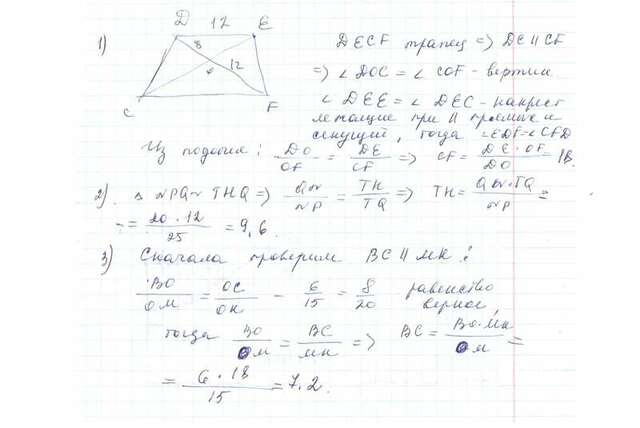 1)
D 12 E
8
o 12
C F
DECF трапец => DE || CF
=> ∠ DOC = ∠ COF - вертик
∠ DEE = ∠ DEC - накрест
лежащие при || прямых и
секущий, тогда ∠EDF = ∠CFD
Из подобия: DO/OF = DE/CF => CF = DE · OF/DO = 18.
2) => TH/TQ => TH =
= 20 · 12/25 = 9,6.
3) Сначала проверим BC || MK:
BO/OM = OC/OK - 6/15 = 8/20 равенство
верное
тогда BO/OM = BC/MK => BC = BO · MK/OM =
= 6 · 18/15 = 7.2.